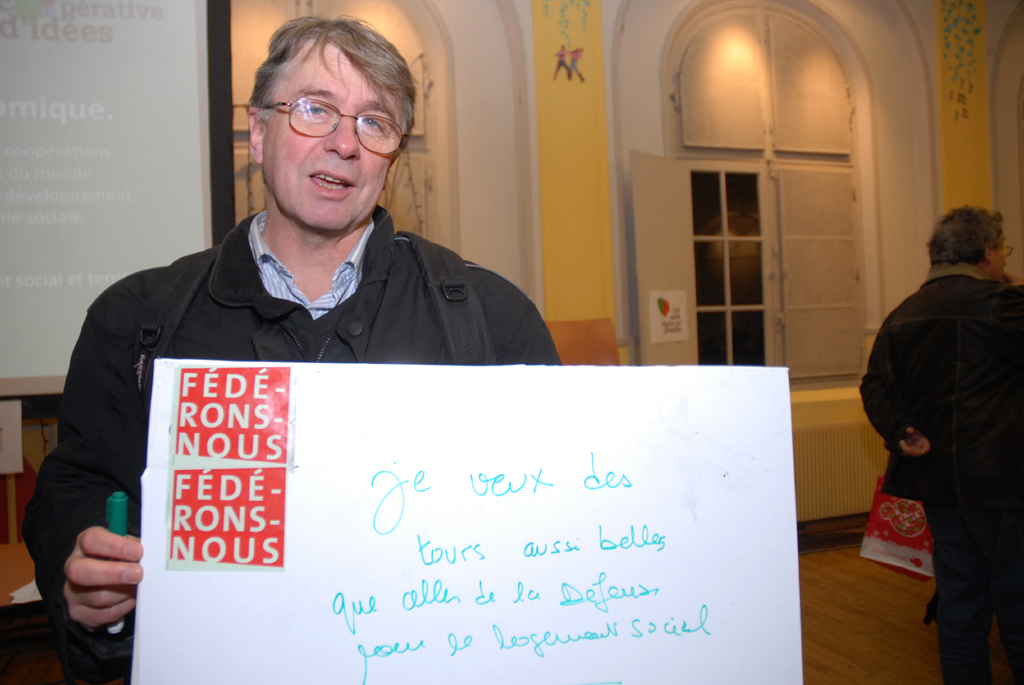 opérative
d'Idées
omique.
coopérations
s du monde
-développement,
mie sociale
nt social et terri
FÉDÉ-
RONS-
NOUS
FÉDÉ-
RONS-
NOUS
je veux des
tours aussi belles
que celles de la Défense
pour le logement social